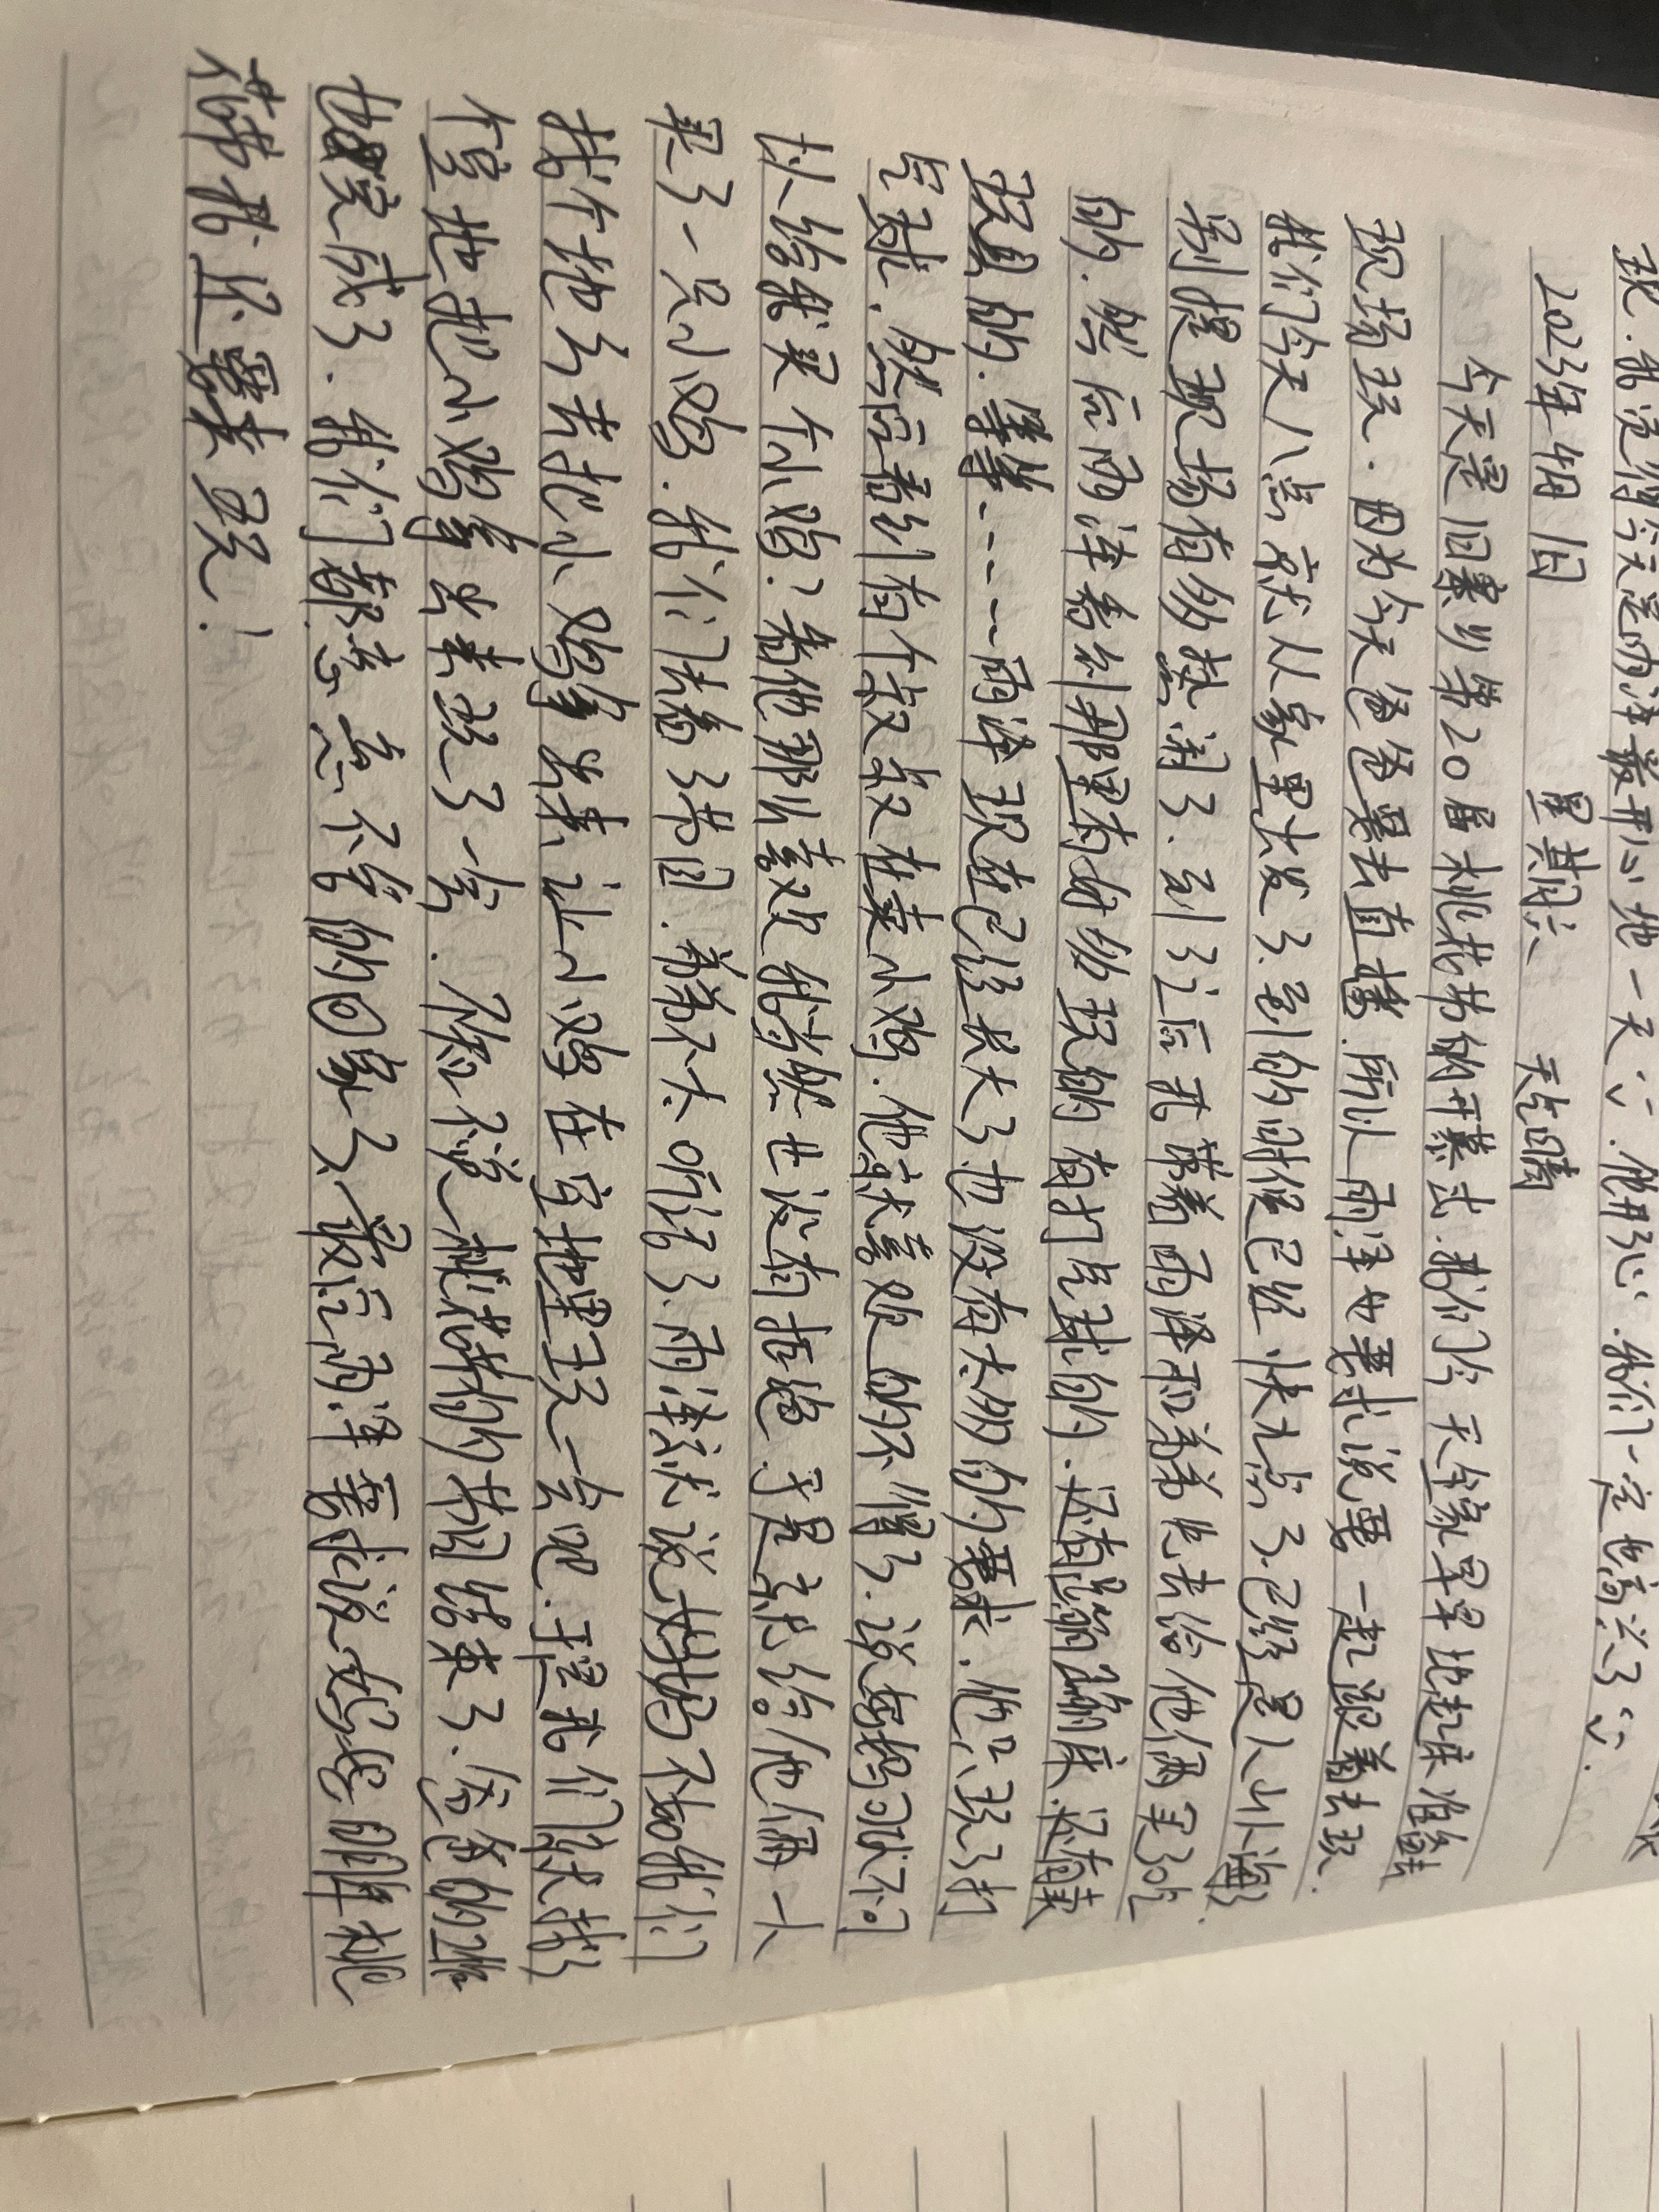 现.我觉得今天是雨泽最开心地一天ツ.他开心.我们一定也高兴了ツ.
2023年4月1日 星期六 天气晴
今天是旧寨乡第20届桃花节的开幕式.我们今天全家早早地起床准备去
现场玩.因为今天爸爸要去直播.所以雨泽也要求说要一起跟着去玩.
我们今天八点就从家里出发了.到的时候已经快九点了.已经是人山人海.
别提现场有多热闹了.到了之后我带着雨泽和弟弟先去给他俩买吃
的.然后雨泽看到那里有好多玩的有打气球的.还有蹦蹦床.还有卖
玩具的.等等-----雨泽现在已经长大了也没有太多的要求.他只玩了打
气球.然后看到有个叔叔在卖小鸡.他就喜欢的不得了.说妈妈可以不可
以给我买个小鸡?看他那么喜欢我当然也没有拒绝.于是就给他俩一人
买了一只小鸡.我们去看了花园.弟弟不太听话了.雨泽就说妈妈不如我们
找个地方去把小鸡拿出来让小鸡在空地里玩一会吧.于是我们就找了
个空地把小鸡拿出来玩了一会.不得不说桃花节的花园结束了.爸爸的工作
也完成了.我们都恋恋不舍的回家了.最后雨泽要求说妈妈明年桃
花节我还要来玩!